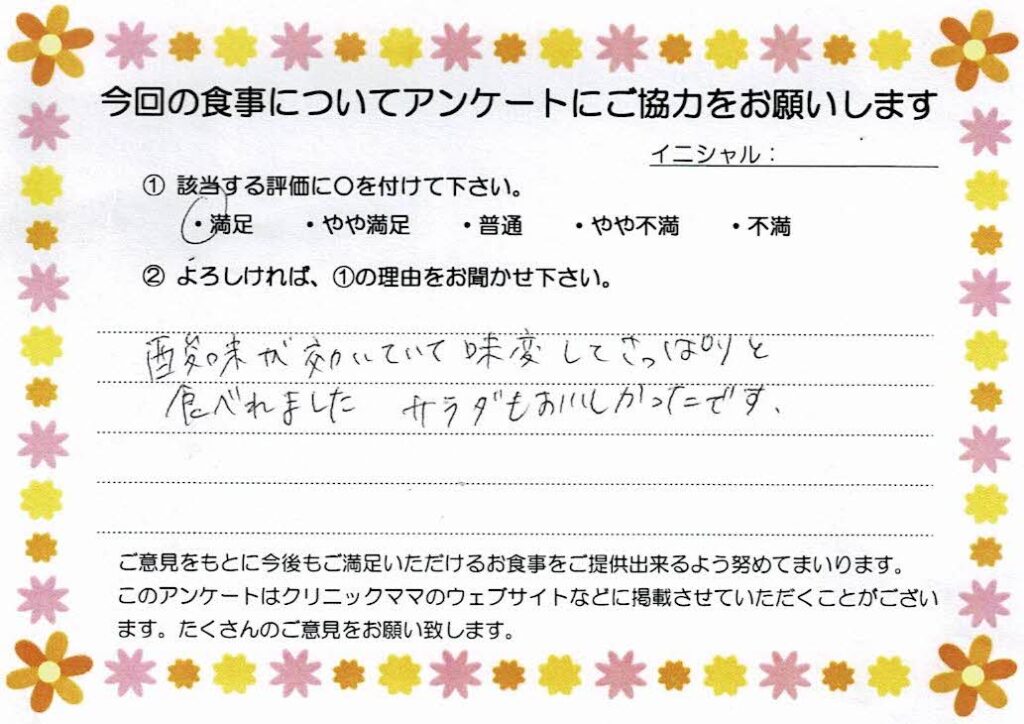 今回の食事についてアンケートにご協力をお願いします
イニシャル：
① 該当する評価に〇を付けて下さい。
・満足 ・やや満足 ・普通 ・やや不満 ・不満
② よろしければ、①の理由をお聞かせ下さい。
酸味が効いていて味変してさっぱりと
食べれました サラダもおいしかったです、
ご意見をもとに今後もご満足いただけるお食事をご提供出来るよう努めてまいります。
このアンケートはクリニックママのウェブサイトなどに掲載させていただくことがござい
ます。たくさんのご意見をお願い致します。